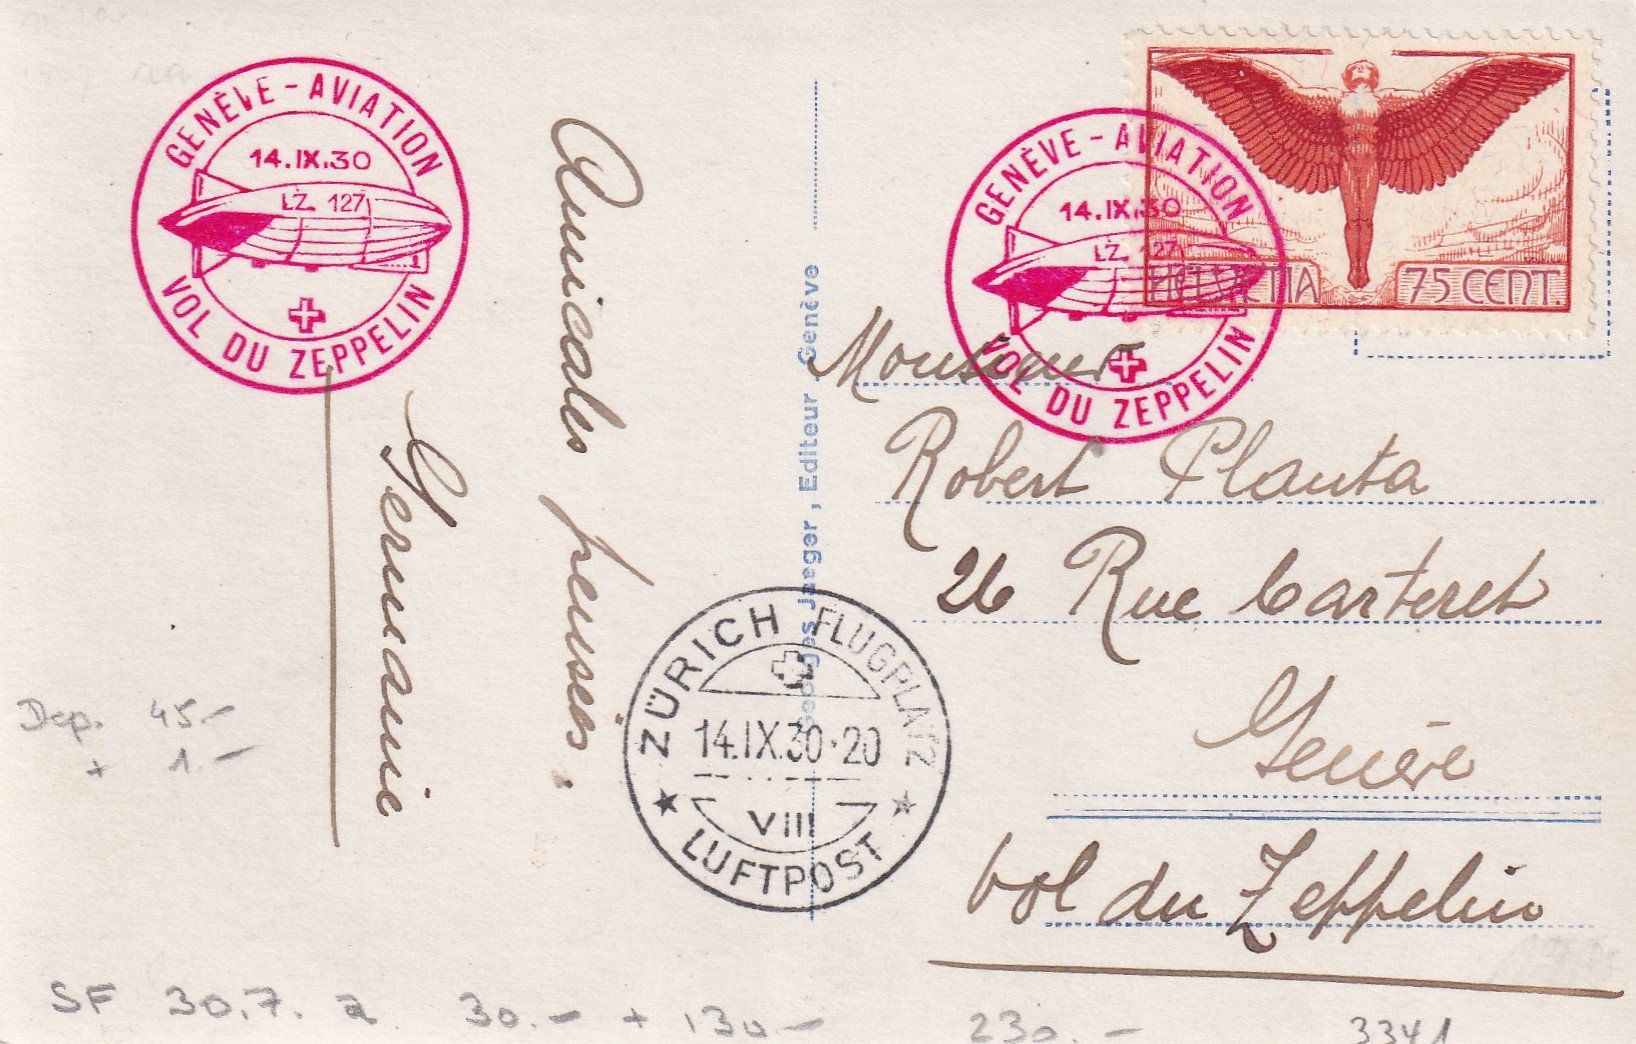 GENÈVE - AVIATION
14.IX.30
LZ. 127
VOL DU ZEPPELIN
GENÈVE - AVIATION
14.IX.30
LZ. 127
VOL DU ZEPPELIN
HELVETIA 75 CENT.
Amicales pensées.
Germaine
Georges Jaeger, Editeur, Genève
Monsieur
Robert Planta
26 Rue Carteret
Genève
Vol du Zeppelin
ZÜRICH FLUGPLATZ
14.IX.30-20
VIII
★ LUFTPOST ★
Dep. 45.-
+ 1.-
SF 30.7. a 30.- + 130.- 230.- 3341